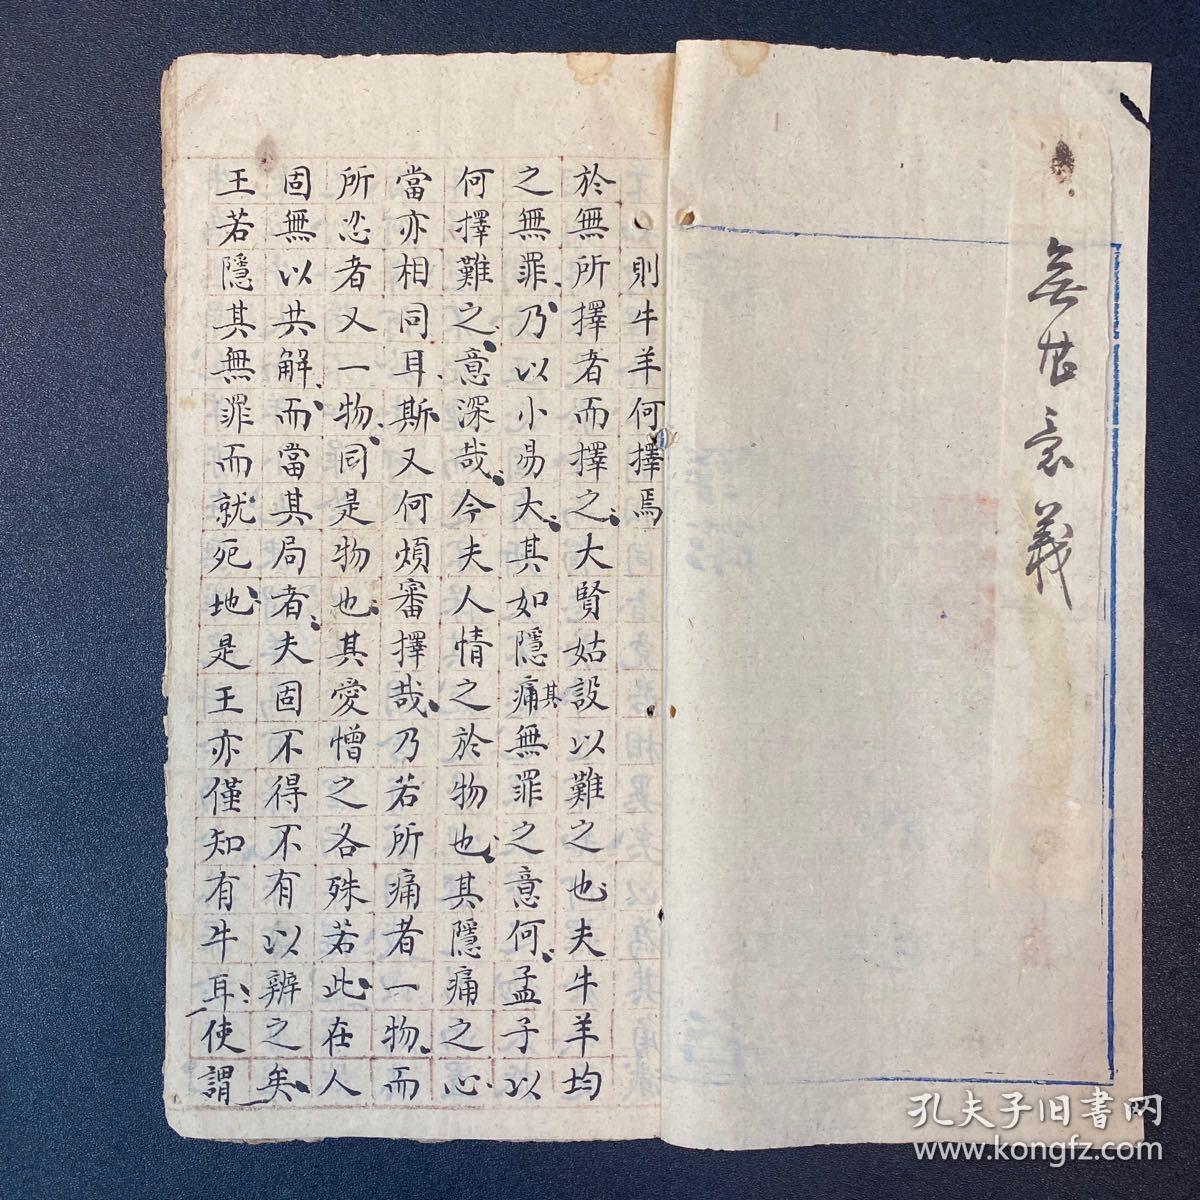 無甚意義
則牛羊何擇焉
於無所擇者而擇之大賢姑設以難之也夫牛羊均
之無罪乃以小易大其如隱痛其無罪之意何孟子以
何擇難之意深哉今夫人情之於物也其隱痛之心
當亦相同耳斯又何煩審擇哉乃若所痛者一物而
所忍者又一物同是物也其愛憎之各殊若此在人
固無以共解而當其局者夫固不得不有以辨之矣
王若隱其無罪而就死地是王亦僅知有牛耳使謂
孔夫子旧書网
www.kongfz.com